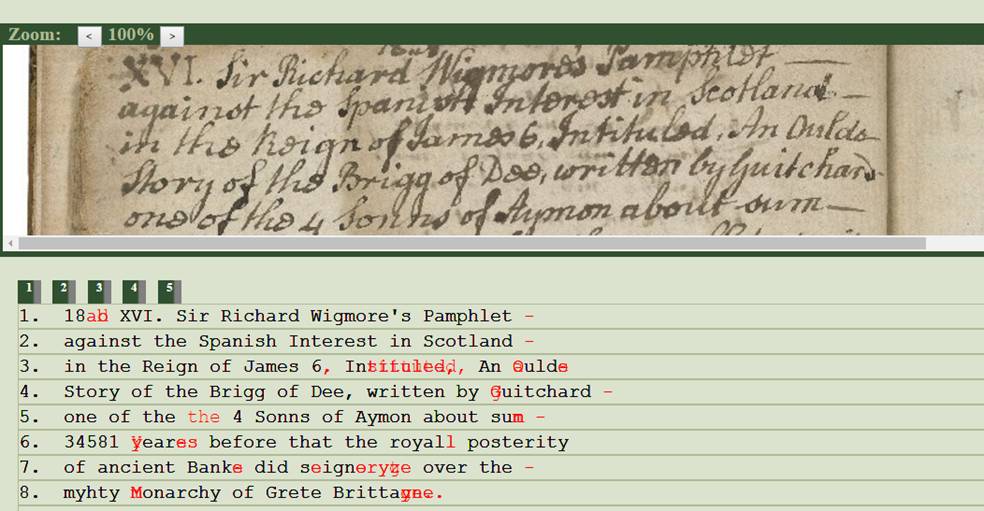 Zoom: < 100% >
XVI. Sir Richard Wigmores Pamphlet —
against the Spanish Interest in Scotland —
in the Reign of James 6, Intituled, An Oulde
Story of the Brigg of Dee, written by Guitchard
one of the 4 Sonns of Aymon about sum —
1 2 3 4 5
1. 18 XVI. Sir Richard Wigmore's Pamphlet -
2. against the Spanish Interest in Scotland -
3. in the Reign of James 6, An
4. Story of the Brigg of Dee, written by Guitchard -
5. one of the the 4 Sonns of Aymon about sum -
6. 34581 before that the royall posterity
7. of ancient did over the -
8. myhty Monarchy of Grete